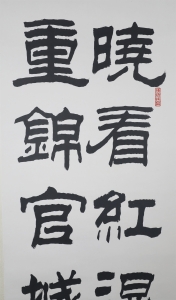 曉看紅濕
重錦官城